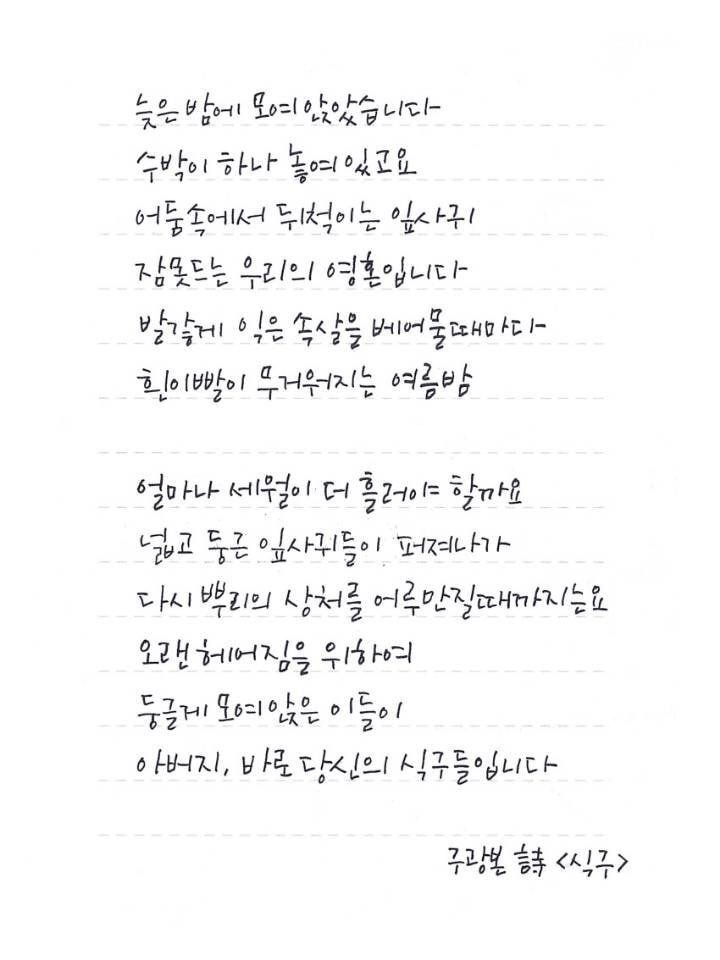 늦은 밤에 모여 앉았습니다
수박이 하나 놓여 있고요
어둠속에서 뒤척이는 잎사귀
잠못드는 우리의 영혼입니다
발갛게 익은 속살을 베어물때마다
흰이빨이 무거워지는 여름밤
얼마나 세월이 더 흘러야 할까요
넓고 둥근 잎사귀들이 퍼져나가
다시 뿌리의 상처를 어루만질때까지는요
오랜 헤어짐을 위하여
둥글게 모여 앉은 이들이
아버지, 바로 당신의 식구들입니다
주광본 詩 <식구>